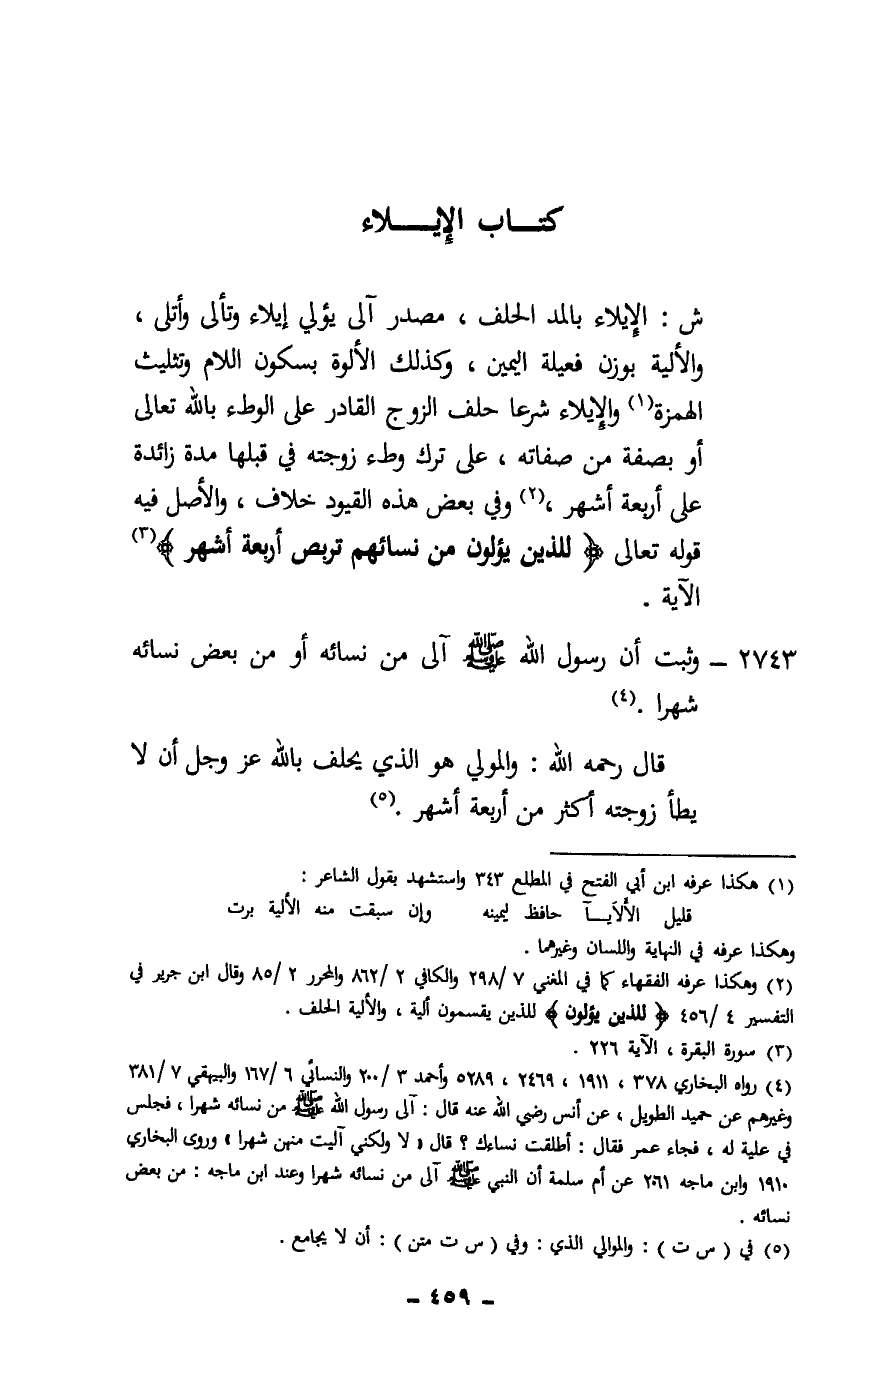 كتـــاب الإيـــــلاء
ش : الإيلاء بالمد الحلف ، مصدر آلى يؤلي إيلاء وتألى وأتلى ،
والألية بوزن فعيلة اليمين ، وكذلك الألوة بسكون اللام وتثليث
الهمزة(١) والإيلاء شرعا حلف الزوج القادر على الوطء بالله تعالى
أو بصفة من صفاته ، على ترك وطء زوجته في قبلها مدة زائدة
على أربعة أشهر ،(٢) وفي بعض هذه القيود خلاف ، والأصل فيه
قوله تعالى ﴿ للذين يؤلون من نسائهم تربص أربعة أشهر ﴾(٣)
الآية .
٢٧٤٣ – وثبت أن رسول الله ﷺ آلى من نسائه أو من بعض نسائه
شهرا .(٤)
قال رحمه الله : والمولي هو الذي يحلف بالله عز وجل أن لا
يطأ زوجته أكثر من أربعة أشهر .(٥)
(١) هكذا عرفه ابن أبي الفتح في المطلع ٣٤٣ واستشهد بقول الشاعر :
قليل الأَلاَيـــآ حافظ ليمينه وإن سبقت منه الألية برت
وهكذا عرفه في النهاية واللسان وغيرهما .
(٢) وهكذا عرفه الفقهاء كما في المغني ٧ /٢٩٨ والكافي ٢ /٨٦٢ والمحرر ٢ /٨٥ وقال ابن جرير في
التفسير ٤ /٤٥٦ ﴿ للذين يؤلون ﴾ للذين يقسمون ألية ، والألية الحلف .
(٣) سورة البقرة ، الآية ٢٢٦ .
(٤) رواه البخاري ٣٧٨ ، ١٩١١ ، ٢٤٦٩ ، ٥٢٨٩ وأحمد ٣ /٢٠٠ والنسائي ٦ /١٦٧ والبيهقي ٧ /٣٨١
وغيرهم عن حميد الطويل ، عن أنس رضي الله عنه قال : آلى رسول الله ﷺ من نسائه شهرا ، فجلس
في علية له ، فجاء عمر فقال : أطلقت نساءك ؟ قال « لا ولكني آليت منهن شهرا » وروى البخاري
١٩١٠ وابن ماجه ٢٠٦١ عن أم سلمة أن النبي ﷺ آلى من نسائه شهرا وعند ابن ماجه : من بعض
نسائه .
(٥) في ( س ت ) : والموالي الذي : وفي ( س ت متن ) : أن لا يجامع .
– ٤٥٩ –